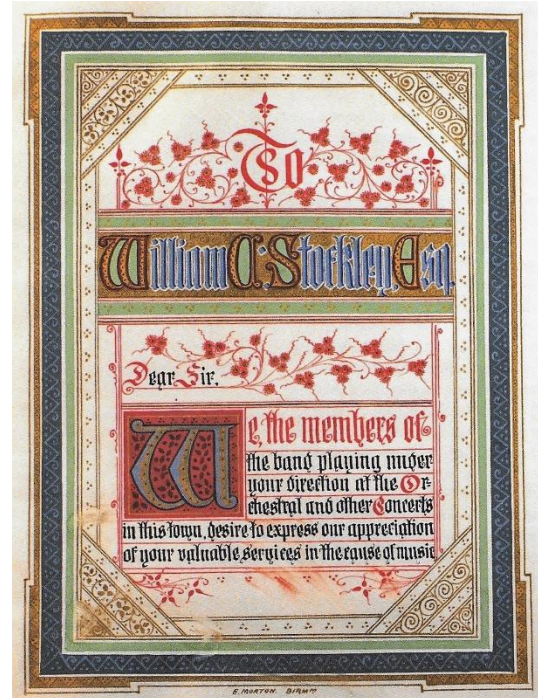 To
William C. Stockley, Esq.
Dear Sir,
We, the members of
the band playing under
your direction at the Or-
chestral and other Concerts
in this town, desire to express our appreciation
of your valuable services in the cause of music
E. MORTON. BIRMM